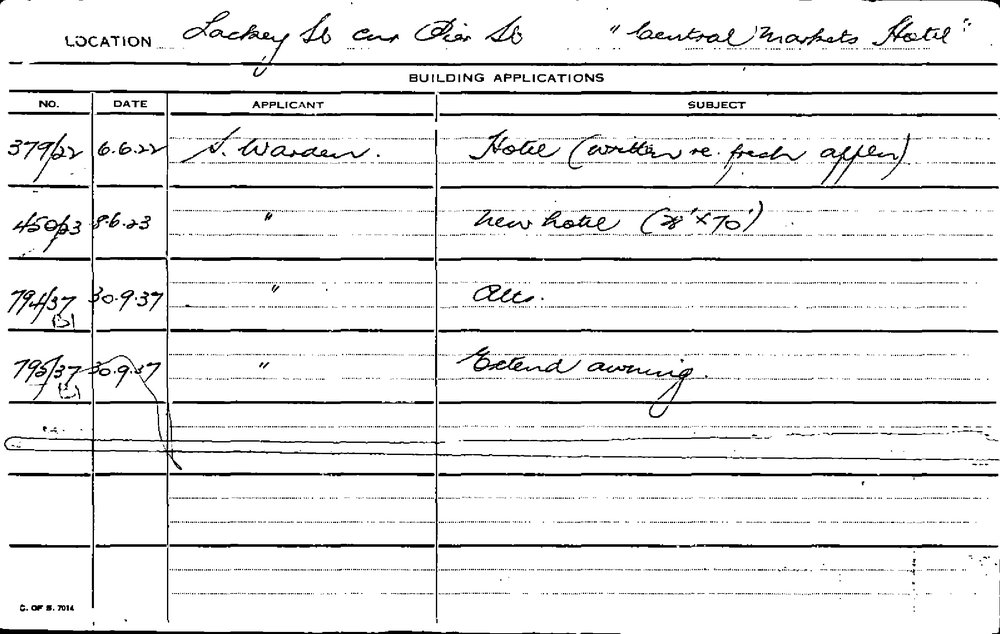 LOCATION Lackey St cnr Pier St "Central Markets Hotel"
BUILDING APPLICATIONS
NO. DATE APPLICANT SUBJECT
379/22 6.6.22 S. Warden. Hotel (written re. fresh applcn)
450/23 8.6.23 " New hotel (28' x 70')
794/37 30.9.37 " Alts.
795/37 30.9.37 " Extend awning.
C. OF S. 7014